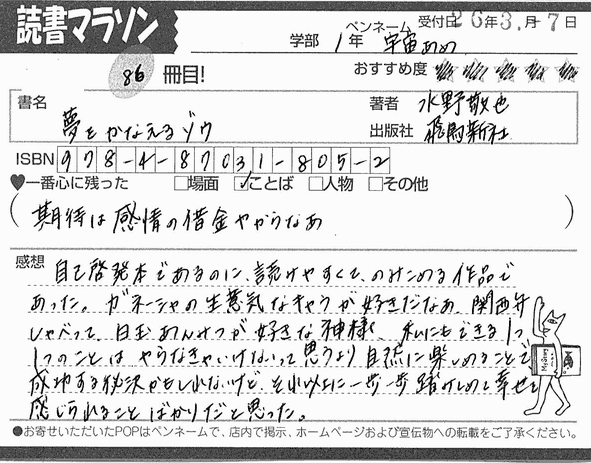 読書マラソン
受付日 26年3月-7日
学部 1年 ペンネーム 宇宙あめ
86 冊目!
おすすめ度
書名 夢をかなえるゾウ
著者 水野敬也
出版社 飛鳥新社
ISBN 978-4-87031-805-2
♥一番心に残った □場面 ☑ことば □人物 □その他
(期待は感情の借金やからなあ)
感想 自己啓発本であるのに、読みやすくて、のみこめる作品で
あった。ガネーシャの生意気なキャラが好きだなあ、関西弁
しゃべって、白玉あんみつが好きな神様。私にもできる1つ
1つのことはやらなきゃいけないって思うより自然に楽しめることで
成功する秘訣かもしれないけど、それ以上に一歩一歩踏みしめて幸せを
感じられることばかりだと思った。
●お寄せいただいたPOPはペンネームで、店内で掲示、ホームページおよび宣伝物への転載をご了承ください。